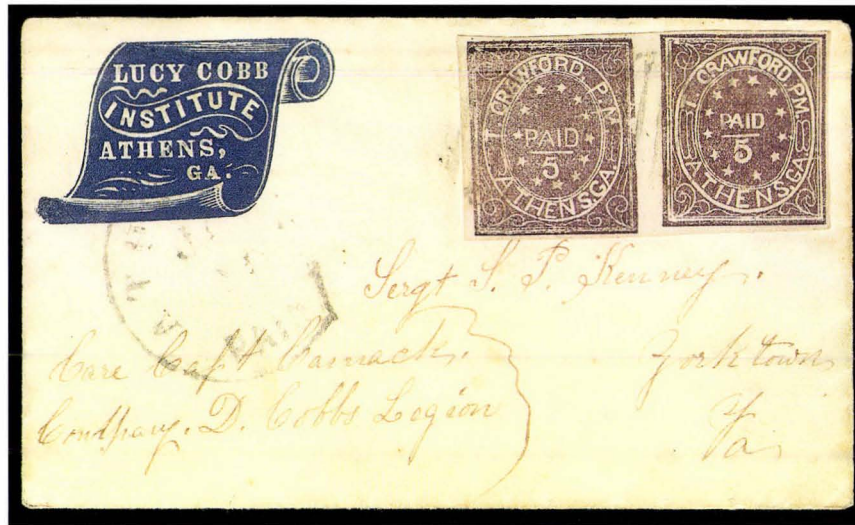 LUCY COBB
INSTITUTE
ATHENS,
GA.
T. CRAWFORD, P.M.
PAID
5
ATHENS, GA.
T. CRAWFORD, P.M.
PAID
5
ATHENS, GA.
PAID
Sergt S. P. Kenney.
Care Capt Camack.
Yorktown
Company. D. Cobbs Legion
Va.